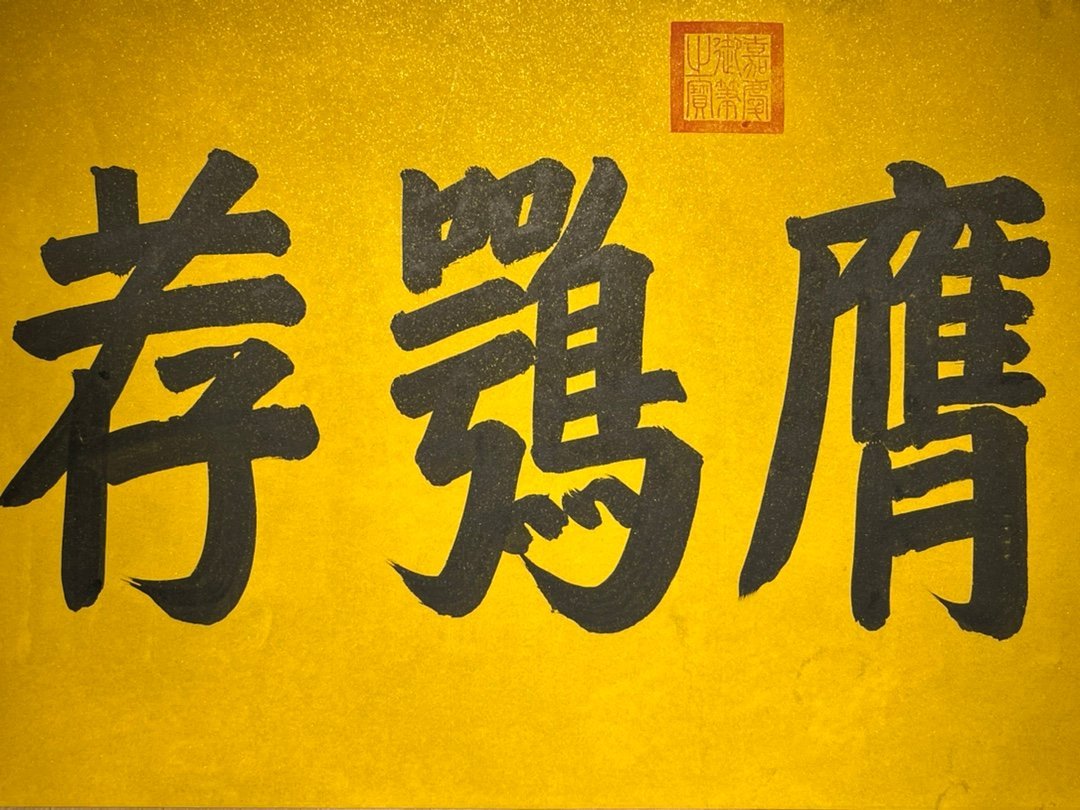 膺鶚荐
嘉慶御筆之寶